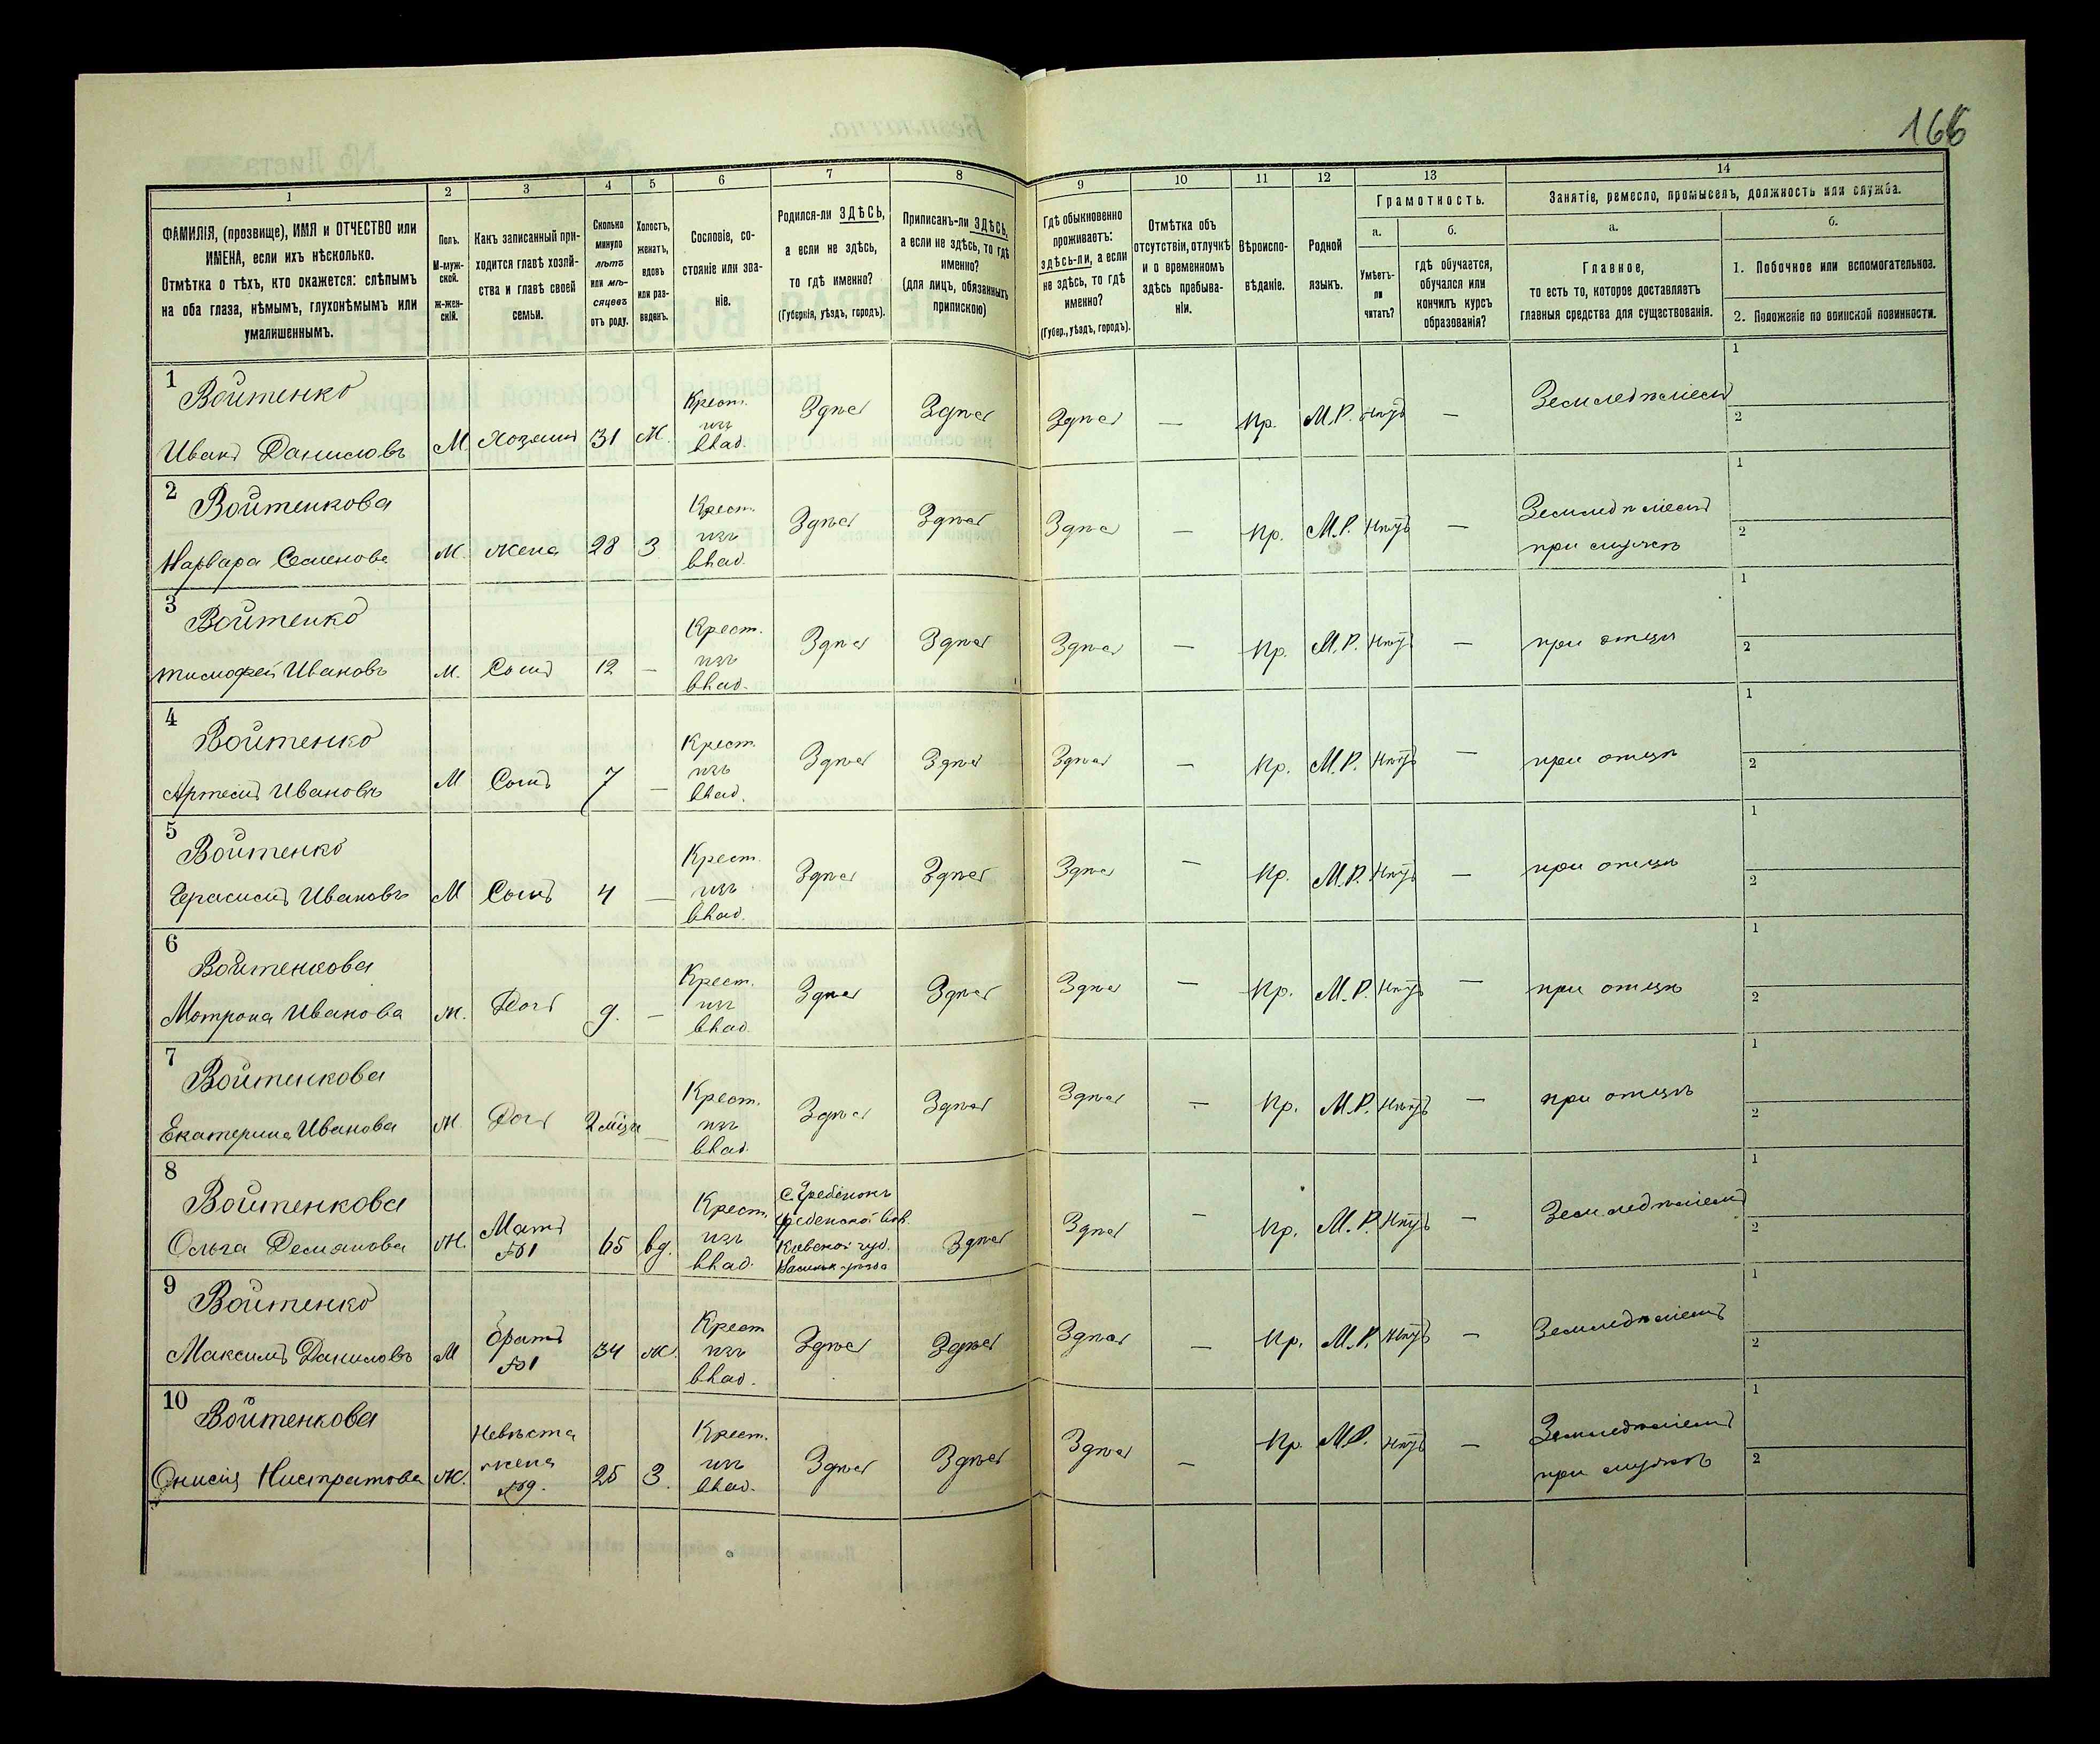 166
1 2 3 4 5 6 7 8 9 10 11 12 13 14
ФАМИЛІЯ, (прозвище), ИМЯ и ОТЧЕСТВО или
ИМЕНА, если ихъ нѣсколько.
Отмѣтка о тѣхъ, кто окажется: слѣпымъ
на оба глаза, нѣмымъ, глухонѣмымъ или
умалишеннымъ.
Полъ.
М-муж-
ской.
Ж-жен-
скій.
Какъ записанный при-
ходится главѣ хозяй-
ства и главѣ своей
семьи.
Сколько
минуло
лѣтъ
или мѣ-
сяцевъ
отъ роду.
Холостъ,
женатъ,
вдовъ
или раз-
веденъ.
Сословіе, со-
стояніе или зва-
ніе.
Родился-ли ЗДѢСЬ,
а если не здѣсь,
то гдѣ именно?
(Губернія, уѣздъ, городъ).
Приписанъ-ли ЗДѢСЬ,
а если не здѣсь, то гдѣ
именно?
(для лицъ, обязанныхъ
припискою)
Гдѣ обыкновенно
проживаетъ:
здѣсь-ли, а если
не здѣсь, то гдѣ
именно?
(Губер., уѣздъ, городъ).
Отмѣтка объ
отсутствіи, отлучкѣ
и о временномъ
здѣсь пребыва-
ніи.
Вѣроиспо-
вѣданіе.
Родной
языкъ.
Грамотность.
а.
Умѣетъ-
ли
читать?
б.
гдѣ обучается,
обучался или
кончилъ курсъ
образованія?
Занятіе, ремесло, промыселъ, должность или служба.
а.
Главное,
то есть то, которое доставляетъ
главныя средства для существованія.
б.
1. Побочное или вспомогательное.
2. Положеніе по воинской повинности.
1 Войтенко
Иванъ Даниловъ М. Хозяинъ 31 Ж. Крест. изъ влад. Здѣсь Здѣсь Здѣсь — Пр. М.Р. Нѣтъ — Земледѣліемъ 1 2
2 Войтенкова
Варвара Семенова Ж. Жена 28 З. Крест. изъ влад. Здѣсь Здѣсь Здѣсь — Пр. М.Р. Нѣтъ — Земледѣліемъ при мужѣ 1 2
3 Войтенко
Тимофей Ивановъ М. Сынъ 12 — Крест. изъ влад. Здѣсь Здѣсь Здѣсь — Пр. М.Р. Нѣтъ — при отцѣ 1 2
4 Войтенко
Артемъ Ивановъ М Сынъ 7 — Крест. изъ влад. Здѣсь Здѣсь Здѣсь — Пр. М.Р. Нѣтъ — при отцѣ 1 2
5 Войтенко
Герасимъ Ивановъ М Сынъ 4 — Крест. изъ влад. Здѣсь Здѣсь Здѣсь — Пр. М.Р. Нѣтъ — при отцѣ 1 2
6 Войтенкова
Мотрона Иванова Ж. Дочь 9. — Крест. изъ влад. Здѣсь Здѣсь Здѣсь — Пр. М.Р. Нѣтъ — при отцѣ 1 2
7 Войтенкова
Екатерина Иванова Ж. Дочь 2 — Крест. изъ влад. Здѣсь Здѣсь Здѣсь — Пр. М.Р. Нѣтъ — при отцѣ 1 2
8 Войтенкова
Ольга Демянова Ж. Мать №1 65 вд. Крест. изъ влад. с. Гребінокъ Гребенской вол. Кіевской губ. Васильк. уѣзда Здѣсь Здѣсь — Пр. М.Р. Нѣтъ — Земледѣліемъ 1 2
9 Войтенко
Максимъ Даниловъ М братъ №1 34 Ж. Крест изъ влад. Здѣсь Здѣсь Здѣсь — Пр. М.Р. Нѣтъ — Земледѣліемъ 1 2
10 Войтенкова
Онисія Нистратова Ж. Невѣста жена №9. 25 З. Крест. изъ влад. Здѣсь Здѣсь Здѣсь — Пр. М.Р. Нѣтъ — Земледѣліемъ при мужѣ 1 2